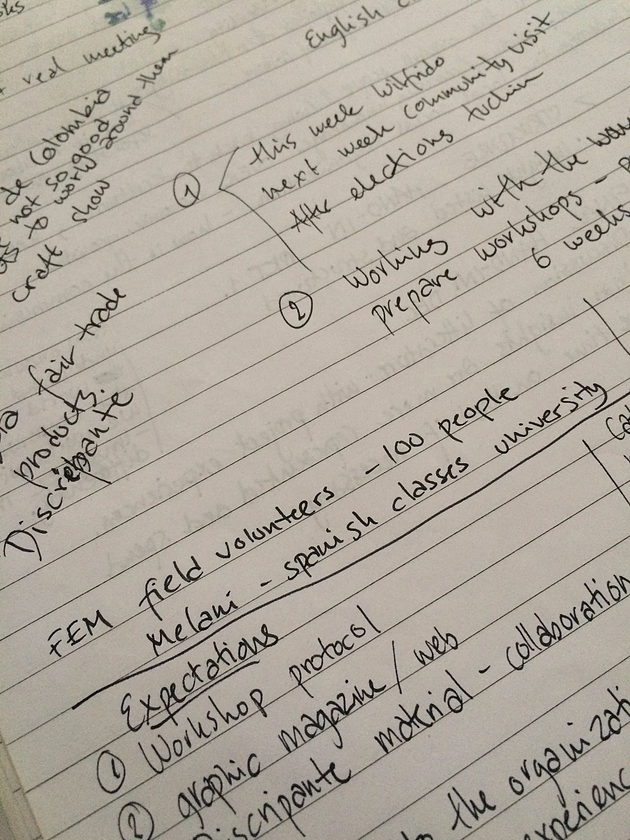 English
real meeting
de Colombia
not so good
to work around them
craft show
① this week Wilfrido
next week community visit
After elections tuchin
② Working with the
prepare workshops -
6 weeks
fair trade
products.
Discripante
FEM field volunteers - 100 people
Melani - spanish classes university
Expectations
① Workshop protocol
② graphic magazine / web
Discripante material - collaboration
the